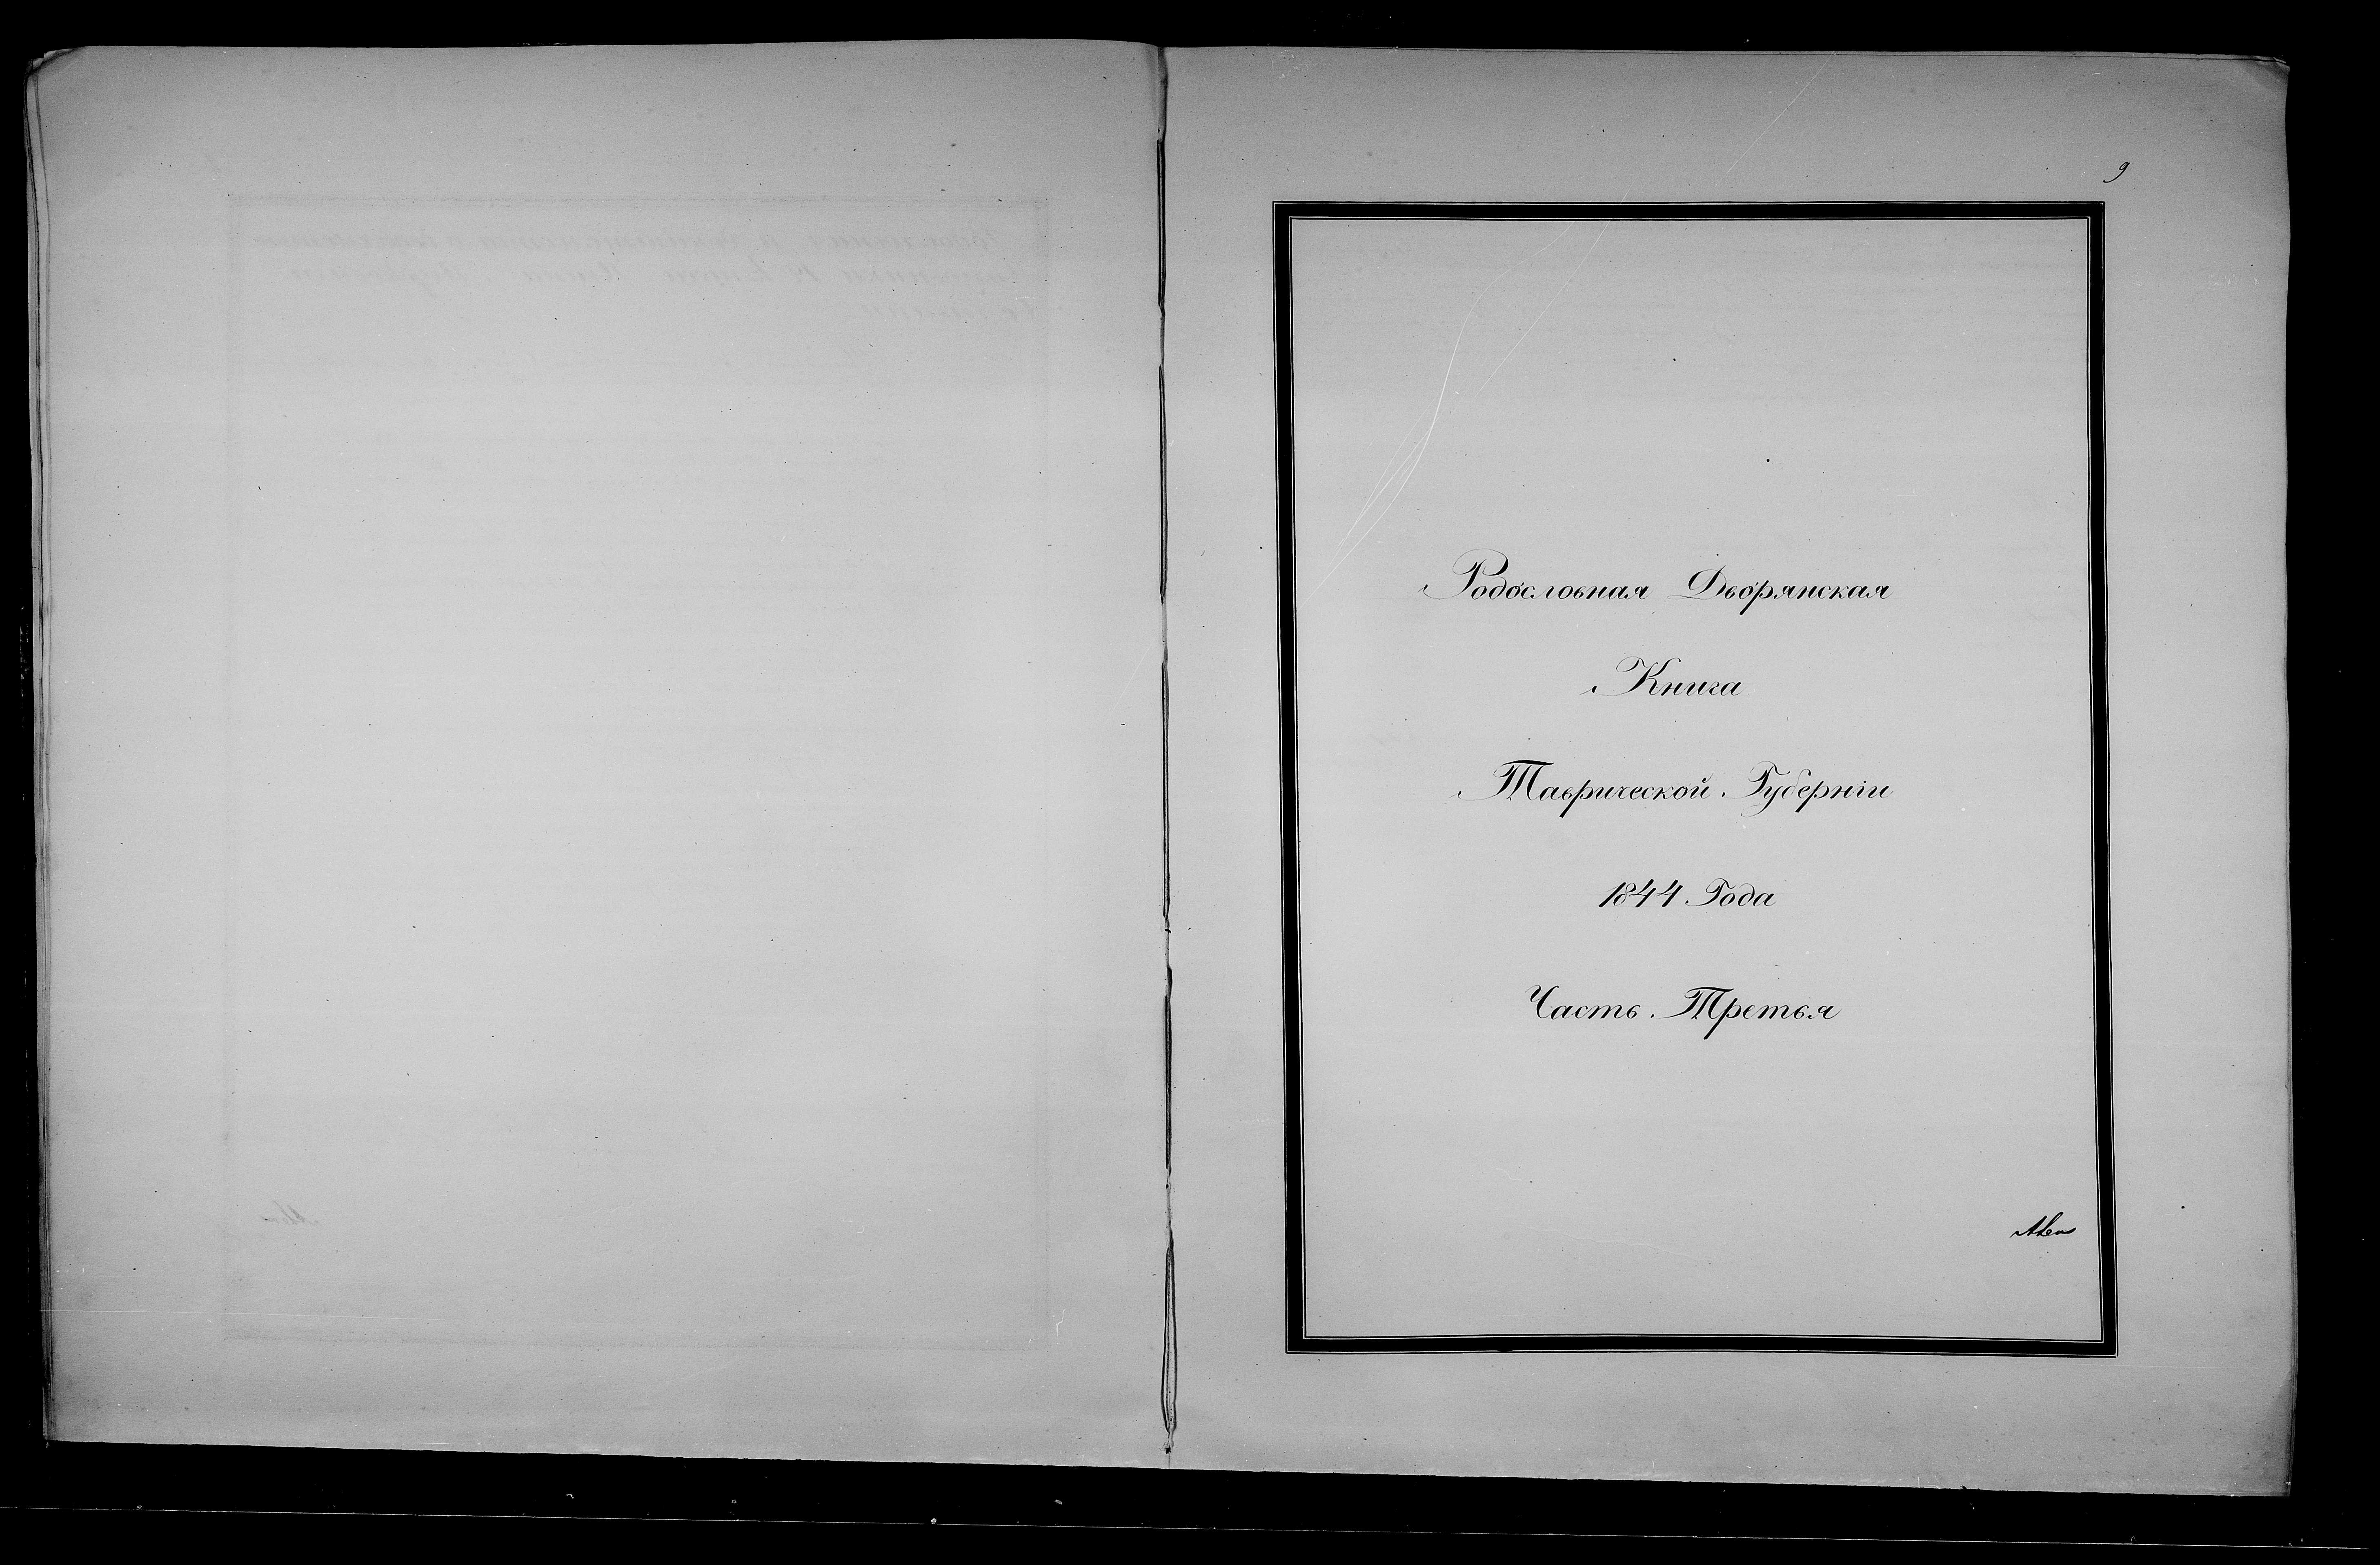 9
Родословная Дворянская
Книга
Таврической Губерніи
1844 Года
Часть Третья